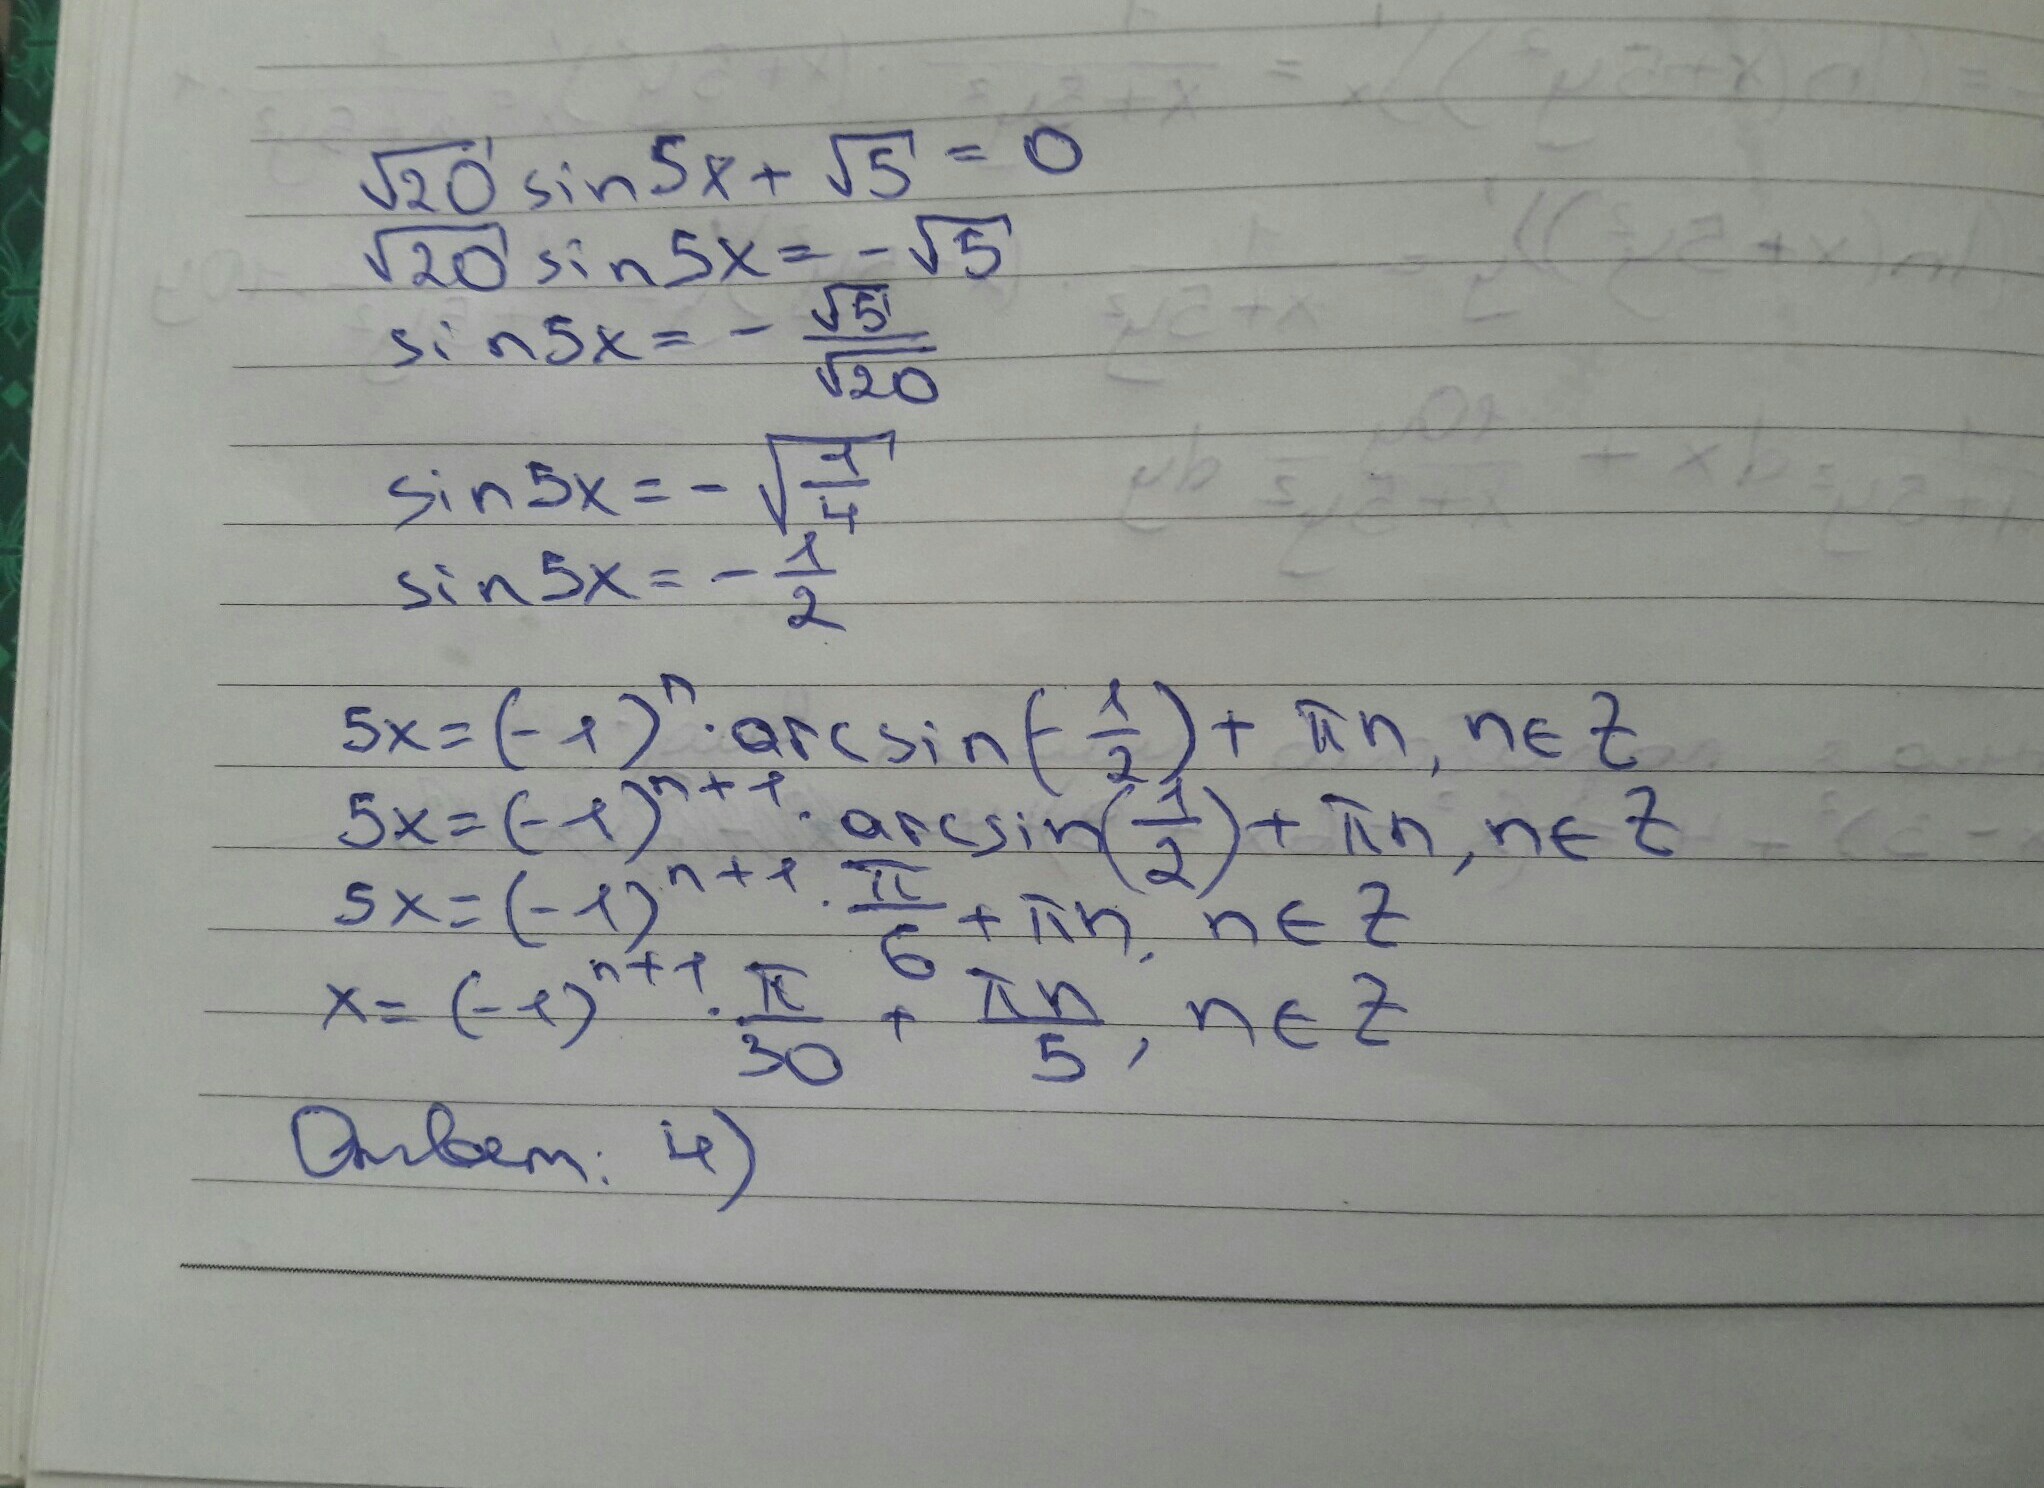 √20 sin5x + √5 = 0
√20 sin5x = -√5
sin5x = - √5/√20
sin5x = - √(1/4)
sin5x = - 1/2
5x = (-1)ⁿ · arcsin(-1/2) + πn, n∈Z
5x = (-1)ⁿ⁺¹ · arcsin(1/2) + πn, n∈Z
5x = (-1)ⁿ⁺¹ · π/6 + πn, n∈Z
x = (-1)ⁿ⁺¹ · π/30 + πn/5, n∈Z
Ответ: 4)